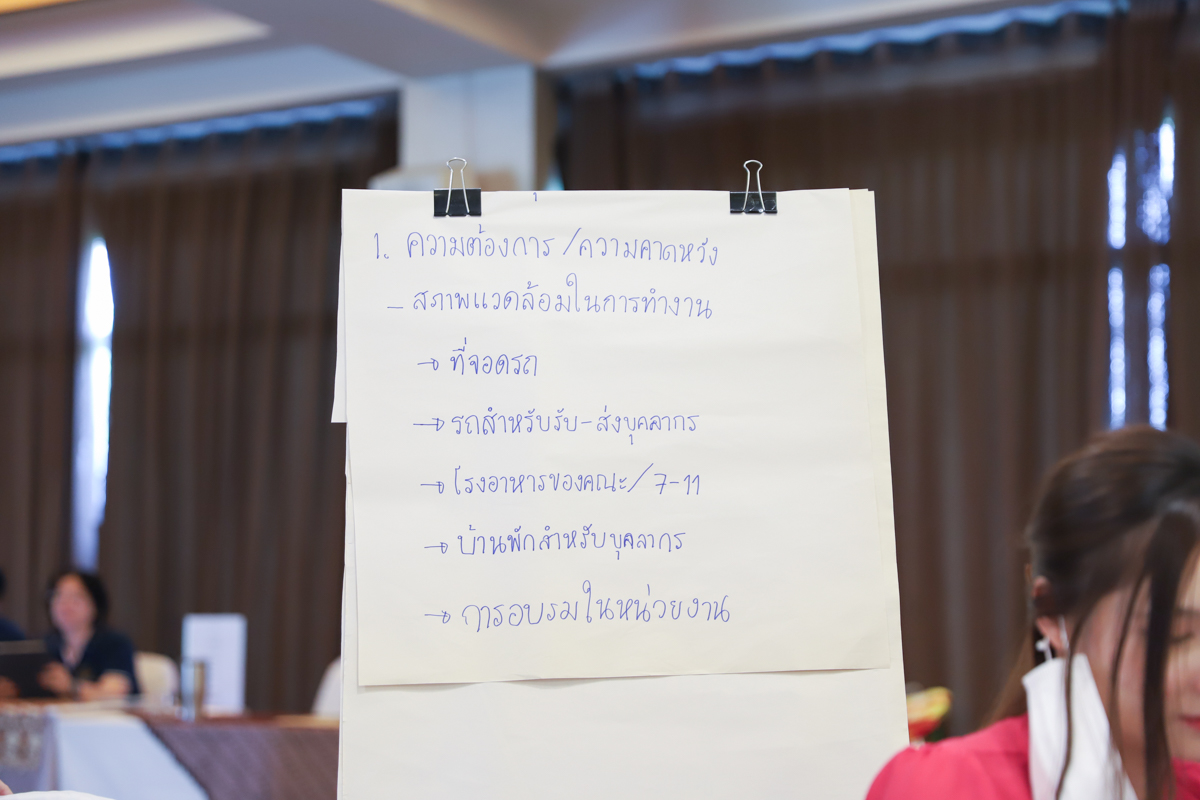 1. ความต้องการ/ความคาดหวัง
- สภาพแวดล้อมในการทำงาน
→ ที่จอดรถ
→ รถสำหรับรับ-ส่งบุคลากร
→ โรงอาหารของคณะ/7-11
→ บ้านพักสำหรับบุคลากร
→ การอบรมในหน่วยงาน